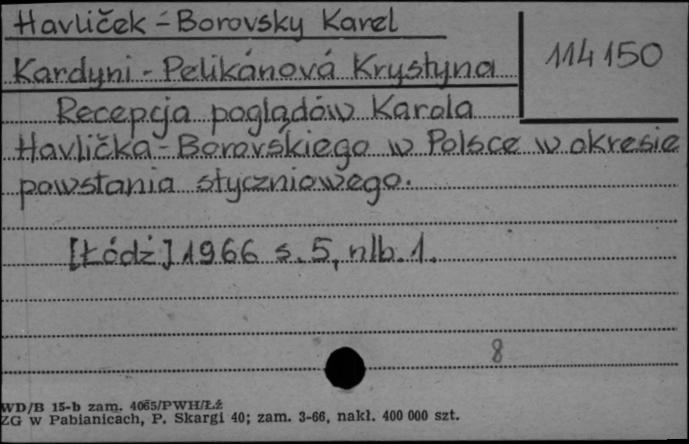 Havliček-Borovsky Karel
114150
Kardyni-Pelikánová Krystyna
Recepcja poglądów Karola
Havlička-Borovskiego w Polsce w okresie
powstania styczniowego.
[Łódź] 1966 s. 5, nlb. 1.
8
WD/B 15-b zam. 4065/PWH/Łż
ZG w Pabianicach, P. Skargi 40; zam. 3-66, nakł. 400 000 szt.